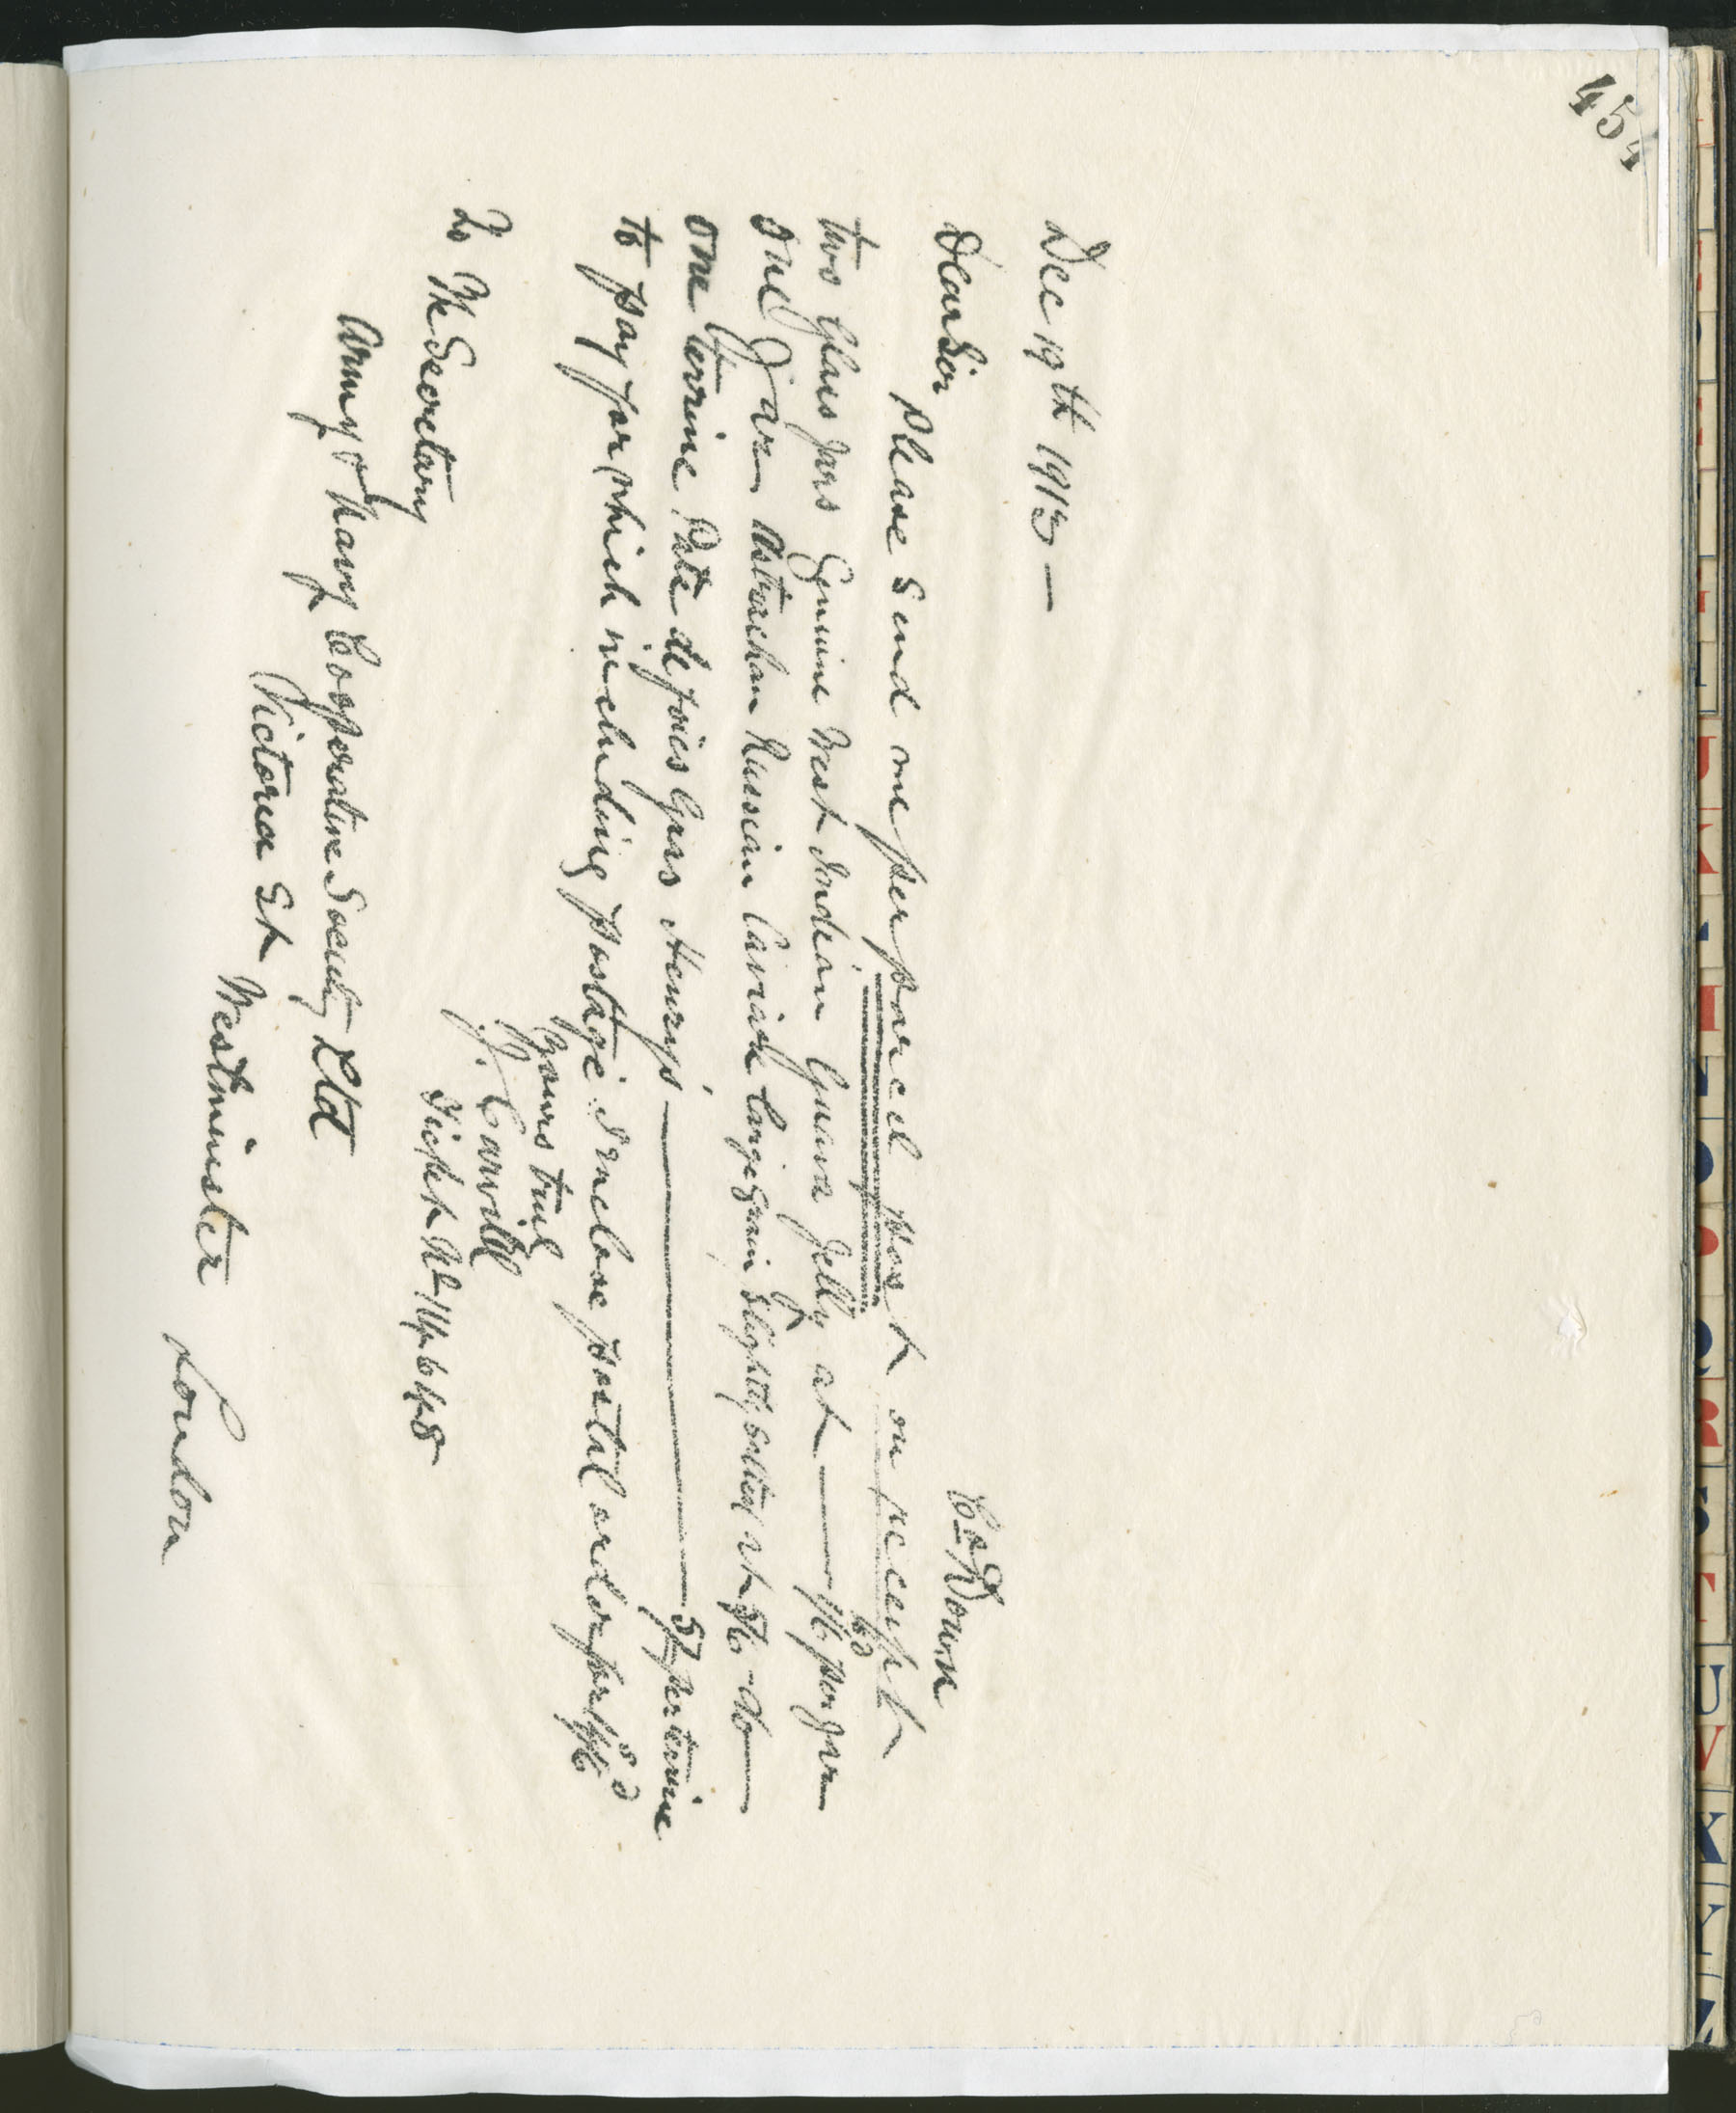 454
Dec 19th 1913 —
Co Down
Dear Sir
Please Send me per parcel post on receipt
two Glass Jars Genuine West Indian Guava Jelly at — 1/6 per Jar
one Jar Astrachan Russian Caviare large grain Slightly salted at 5/6 - do —
one terrine Pate de foies Gras Henrys — 5/ per terrine
to pay for which including postage I inclose postal order for
Yours truly
J. Carvill
Ticket No
To The Secretary
Army & Navy Cooperative Society Ltd
Victoria St
Westminster
London